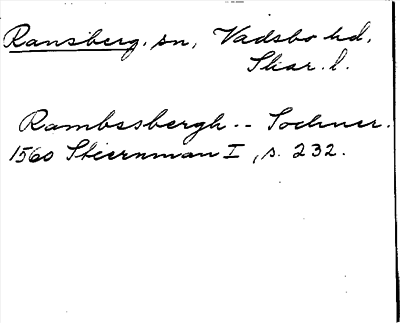 Ransberg, sn, Vadsbo hd,
Skar. l.
Rambssbergh -- Sochner.
1560 Stiernman I, s. 232.